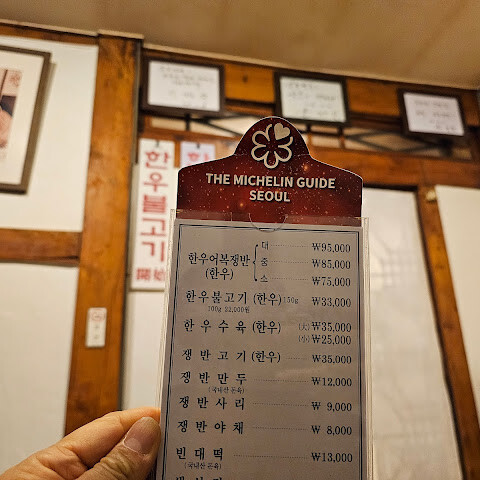 THE MICHELIN GUIDE
SEOUL
한우어복쟁반
(한우)
대 ₩95,000
중 ₩85,000
소 ₩75,000
한우불고기 (한우) 150g ₩33,000
100g 22,000원
한우수육 (한우) (大) ₩35,000
(小) ₩25,000
쟁반고기 (한우) ₩35,000
쟁반만두 ₩12,000
(국내산 돈육)
쟁반사리 ₩ 9,000
쟁반야채 ₩ 8,000
빈대떡 ₩13,000
(국내산 돈육)
한우불고기